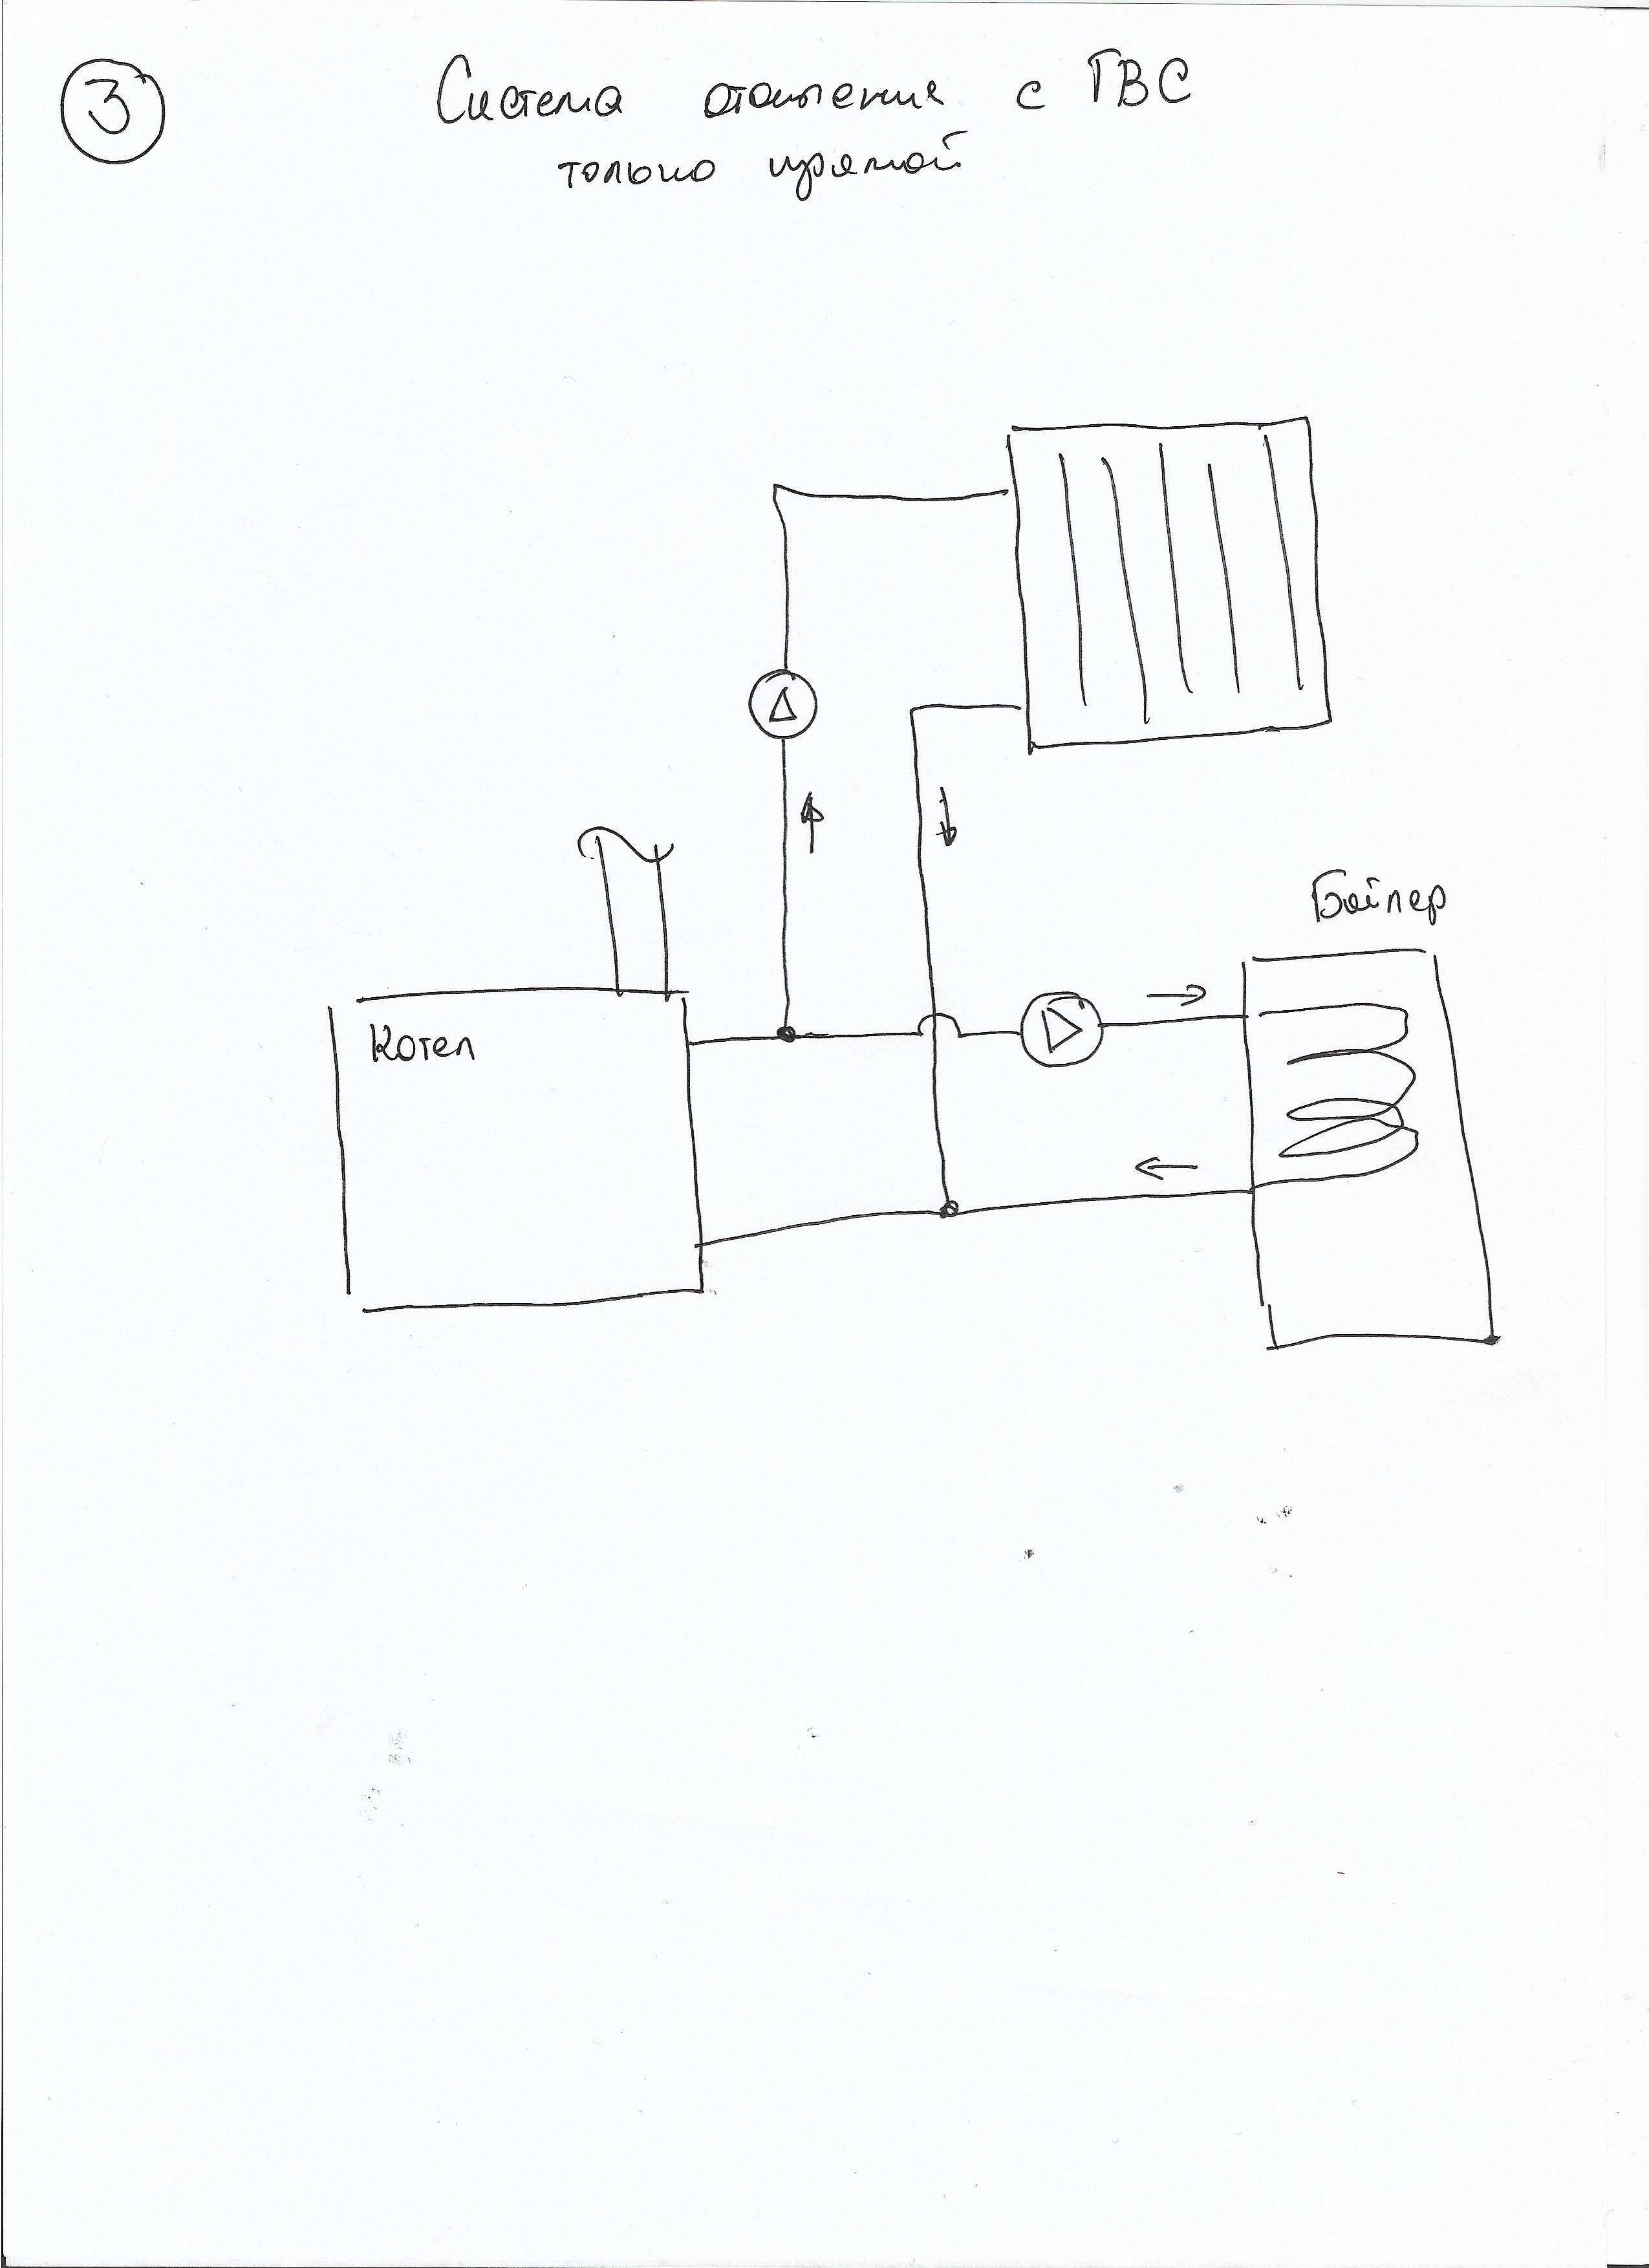 3
Система отопления с ГВС
только прямой
Бойлер
Котел